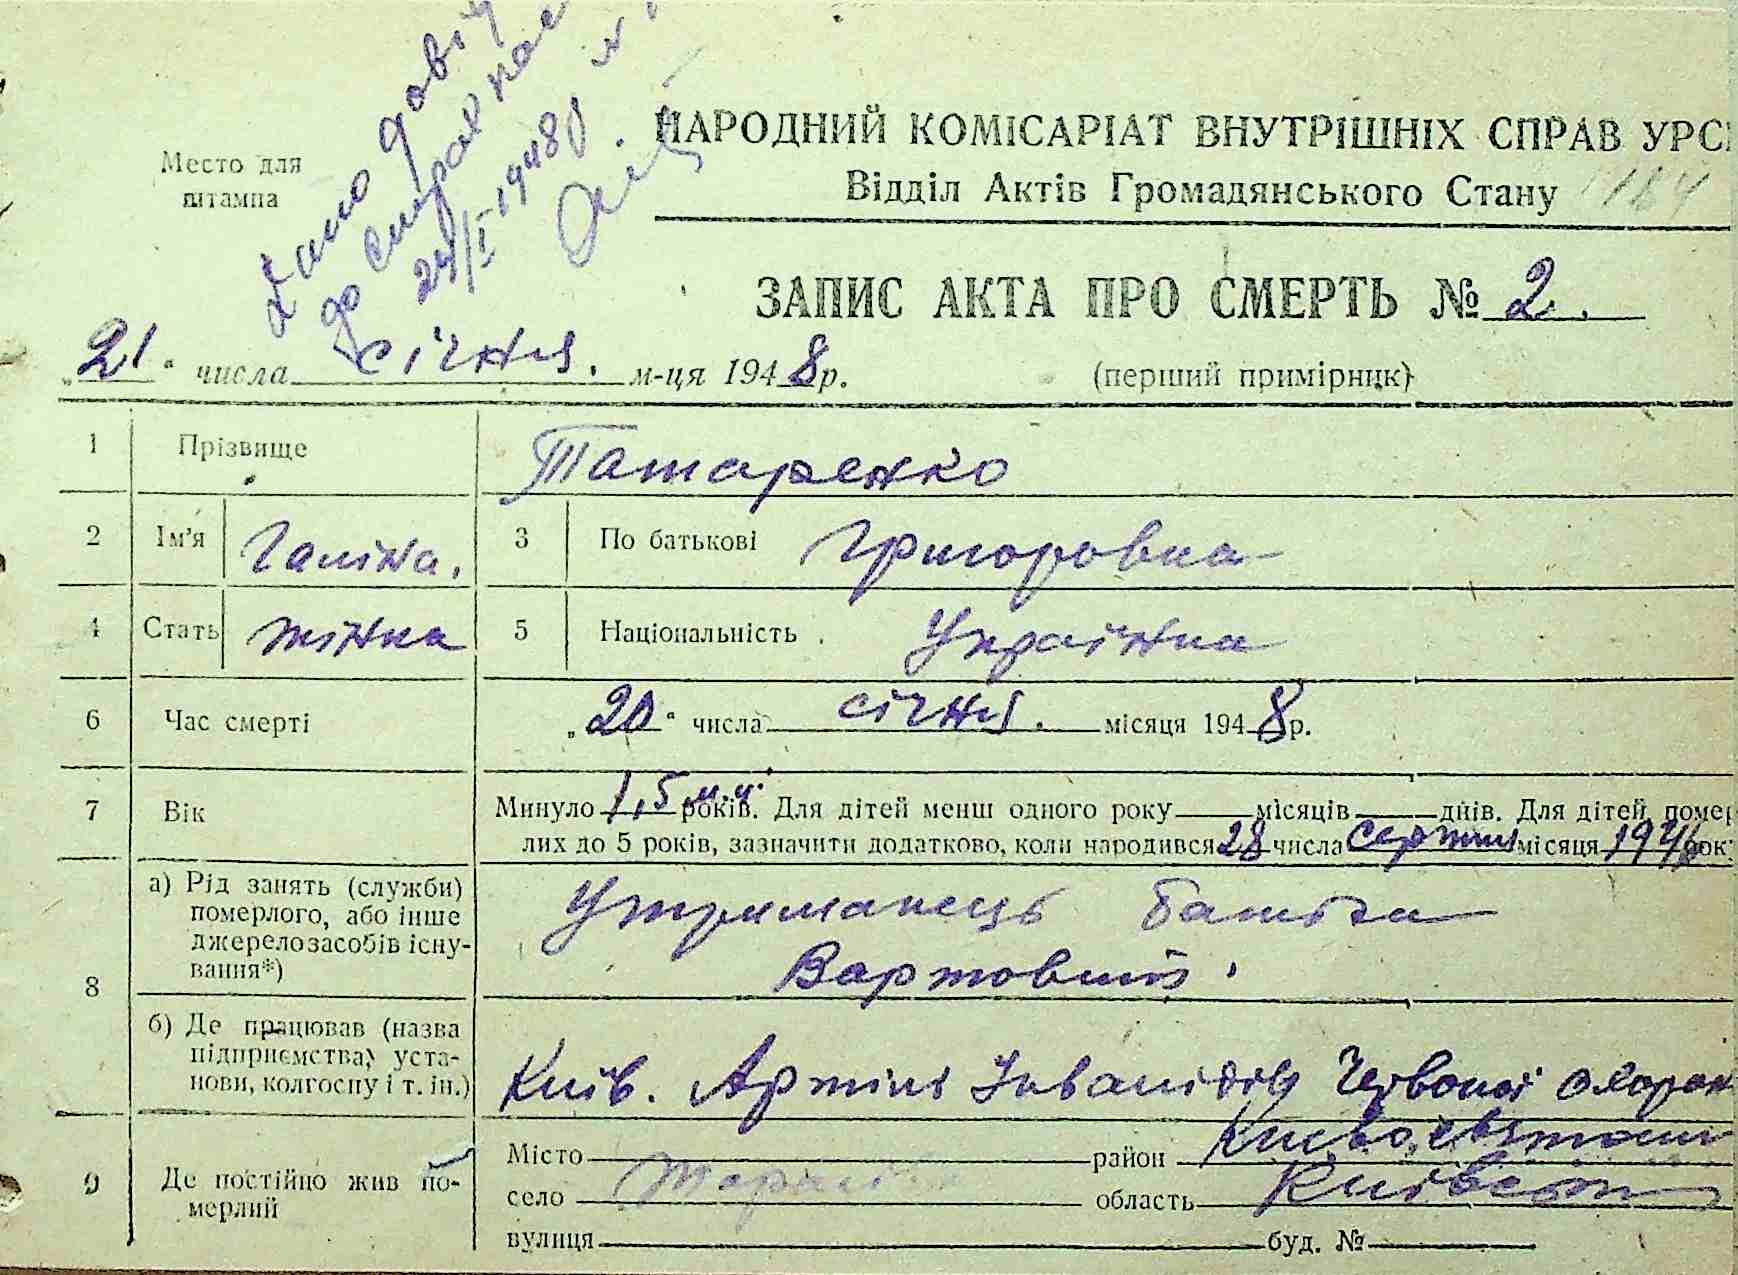 Дано довід
до смерті
24/I 1948
Место для
штампа
НАРОДНИЙ КОМІСАРІАТ ВНУТРІШНІХ СПРАВ УРС
Відділ Актів Громадянського Стану 184
ЗАПИС АКТА ПРО СМЕРТЬ № 2.
„21" числа січня. м-ця 1948 р. (перший примірник)
1 Прізвище Татаренко
2 Ім'я Галіна. 3 По батькові Григоровна
4 Стать жінка 5 Національність Українка
6 Час смерті „20" числа січня. місяця 1948 р.
7 Вік Минуло 1,5 років. Для дітей менш одного року місяців днів. Для дітей помер
лих до 5 років, зазначити додатково, коли народився 28 числа серпня місяця 1946 рок
8 а) Рід занять (служби)
померлого, або інше
джерело засобів існу-
вання*)
Утриманець батька
Вартовий.
б) Де працював (назва
підприємства, уста-
нови, колгоспу і т. ін.)
Київ. Артіль Інвалідів Червоної охорон
9 Де постійно жив по-
мерлий
Місто район Києво, Святош
село область Київськ
вулиця буд. №